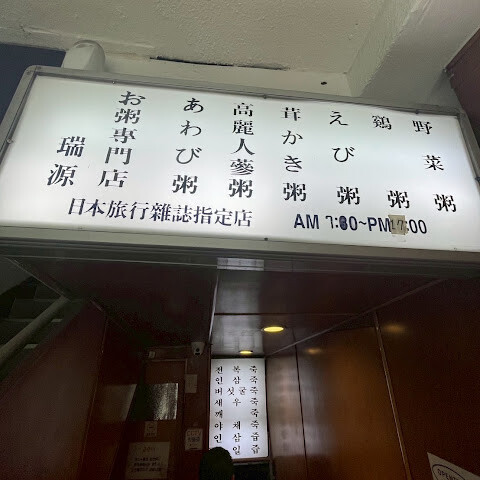 野菜粥
鷄粥
えび粥
茸かき粥
高麗人蔘粥
あわび粥
お粥專門店
瑞源
日本旅行雜誌指定店 AM 7:30~PM17:00
전복죽
인삼죽
버섯굴죽
새우죽
깨죽
야채죽
인삼즙